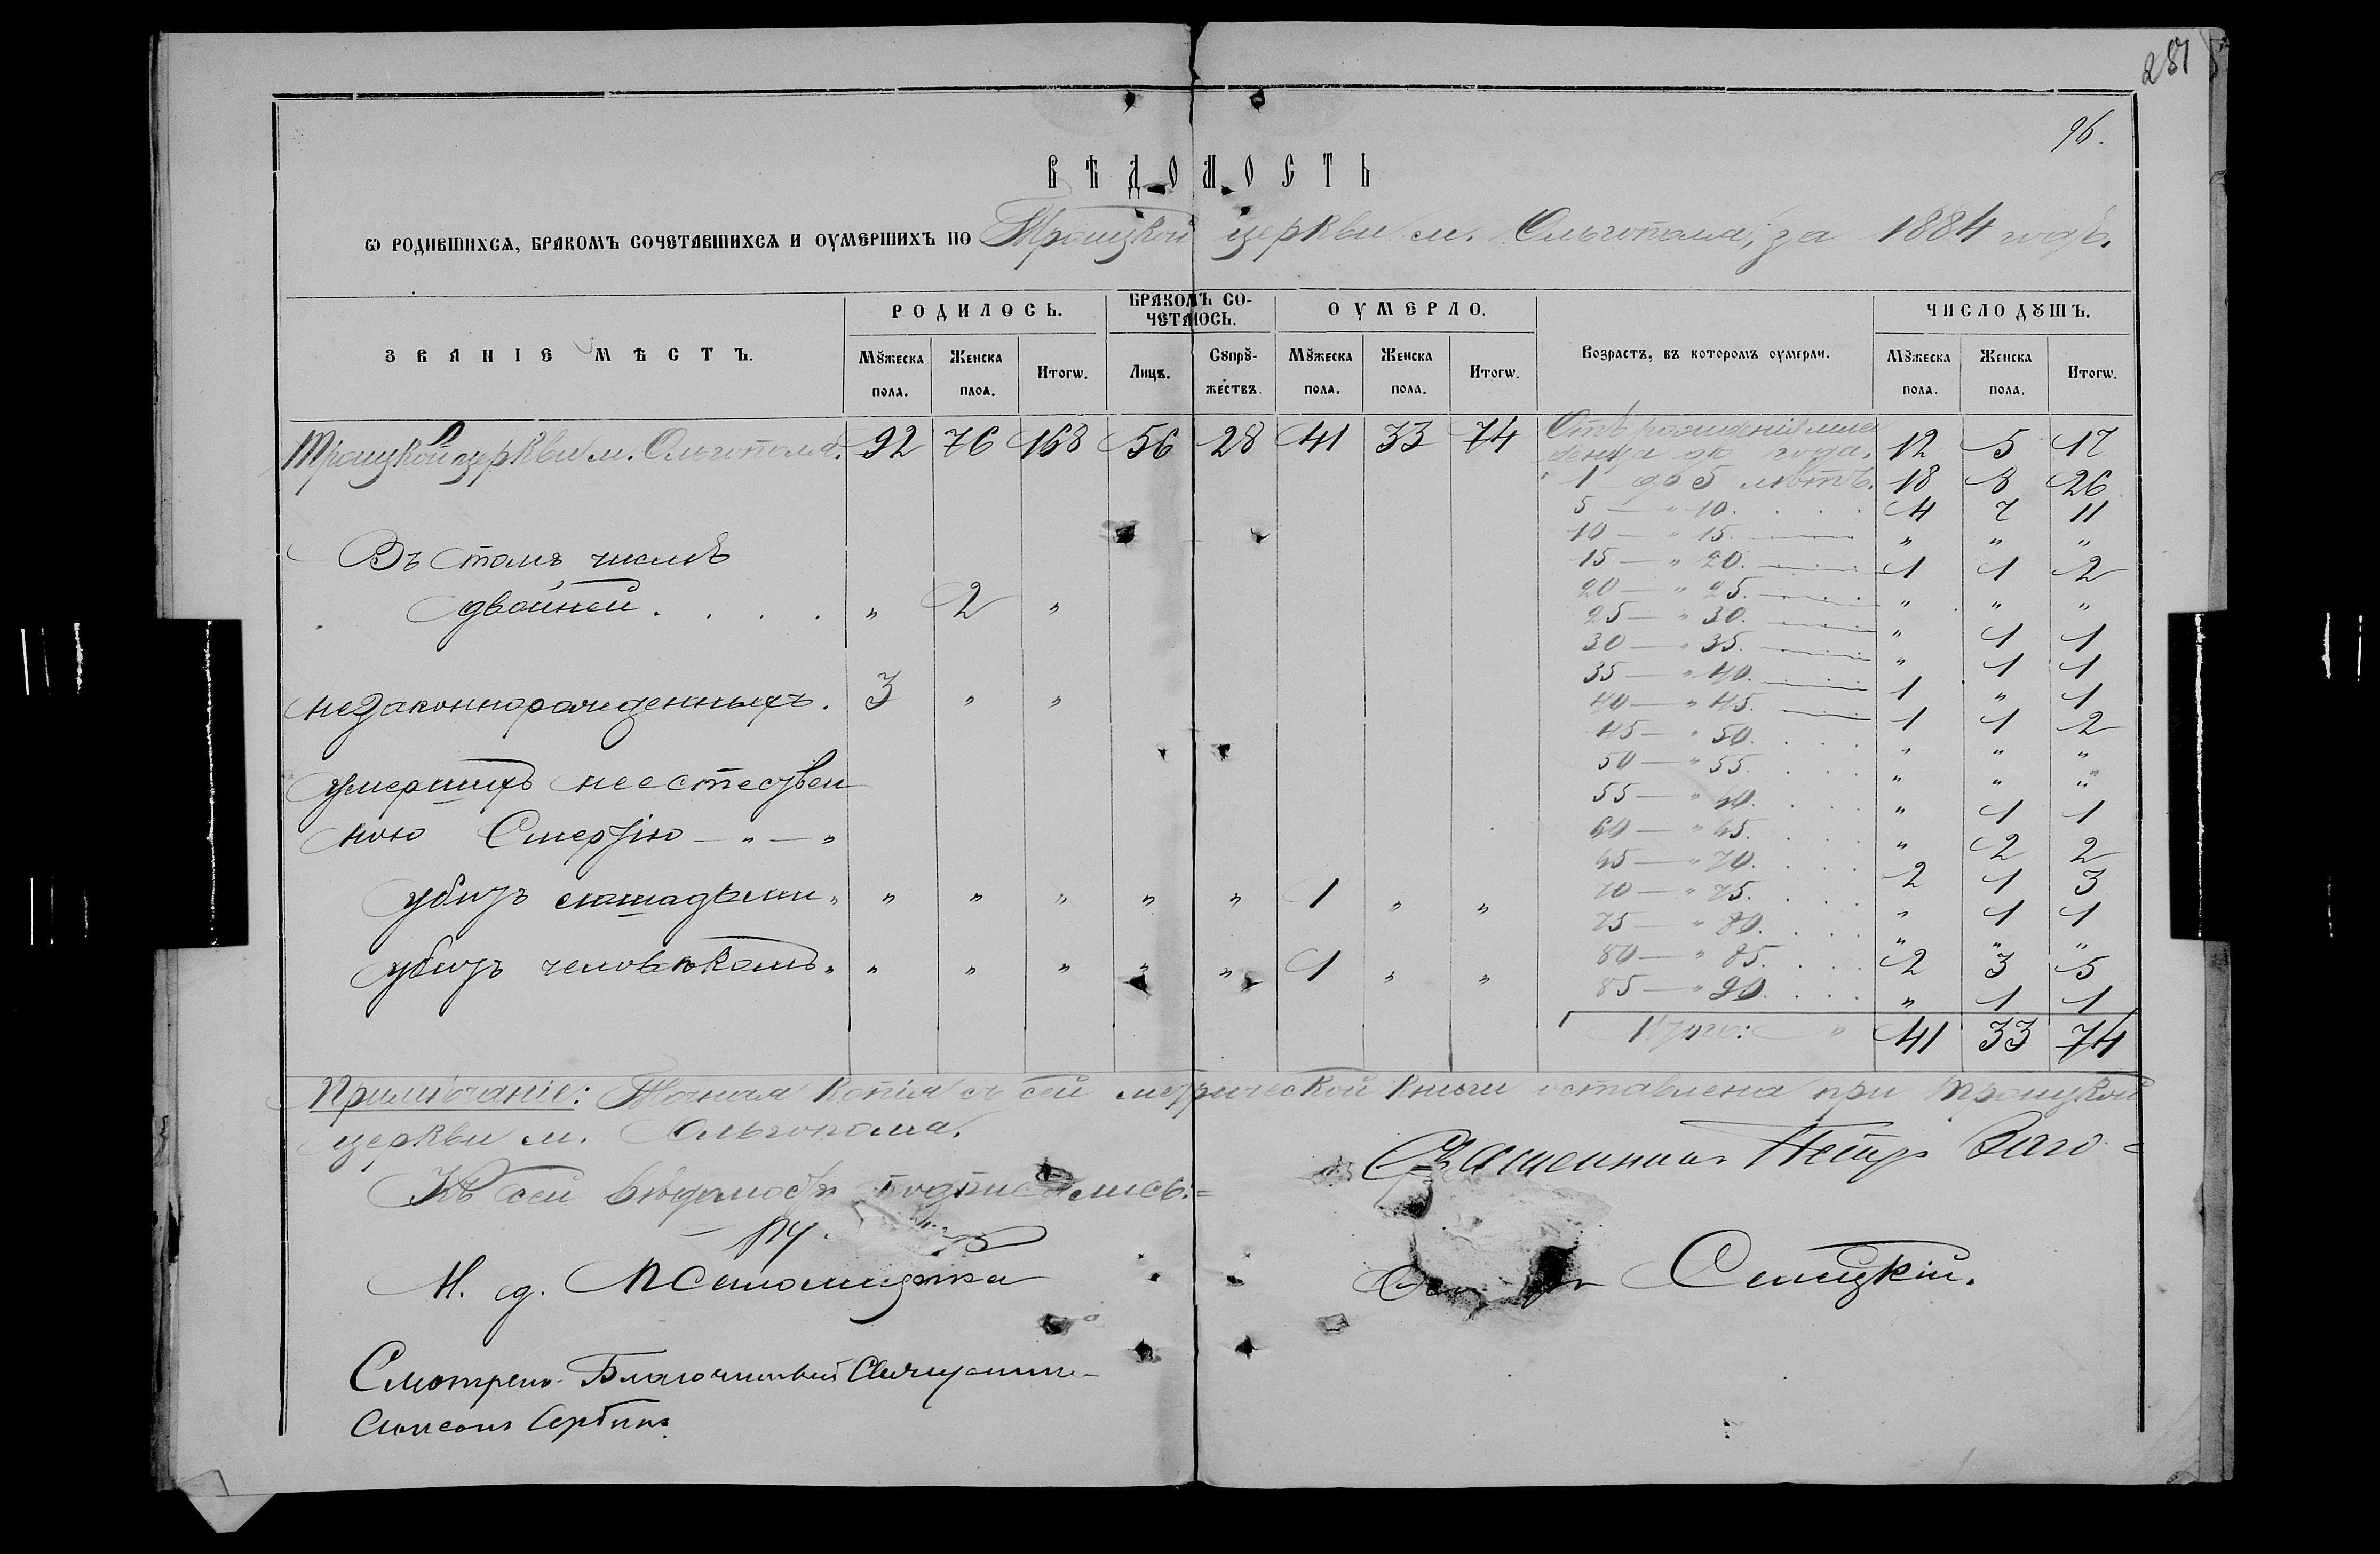 281
96.
ВѢДОМОСТЬ
Ѡ РОДИВШИХСѦ, БРАКОМЪ СОЧЕТАВШИХСѦ И ОУМЕРШИХЪ ПО Троицкой церкви м. Ольгополя, за 1884 годъ.
ЗВАНІЕ МѢСТЪ. РОДИЛОСЬ. БРАКОМЪ СО-ЧЕТАЛОСЬ. ОУМЕРЛО. Возрастъ, въ которомъ оумерли. ЧИСЛО ДꙊШЪ.
Мꙋжеска пола. Женска плоа. Итогѡ. Лицъ. Сꙋпрꙋ-жествъ. Мꙋжеска пола. Женска пола. Итогѡ. Мꙋжеска пола. Женска пола. Итогѡ.
Троицкой церкви м. Ольгополя. 92 76 168 56 28 41 33 74 Отъ рожденія мла
денца до года. 12 5 17
1 до 5 лѣтъ. 18 8 26
5 — " 10. 4 7 11
10 — " 15. " " "
Въ томъ числѣ 15 — " 20. 1 1 2
двойней. " 2 " 20 — " 25. " " "
25 — " 30. " 1 1
30 — " 35. " 1 1
35 — " 40. 1 " 1
незаконнорожденныхъ. 3 " " 40 — " 45. 1 1 2
45 — " 50. " " "
50 — " 55. " " "
умершихъ неестествен 55 — " 60. " 1 1
ною Смертію — " — " 60 — " 65. " 2 2
65 — " 70. 2 1 3
убитъ лошадьми " " " " " " 1 " " 70 — " 75. " 1 1
75 — " 80. " " "
убитъ человѣкомъ " " " " " " 1 " " 80 — " 85. 2 3 5
85 — " 90. " 1 1
Итого: " 41 33 74
Примѣчаніе: Точная копія съ сей метрической книги оставлена при Троицкой
церкви м. Ольгополя.
Къ сей вѣдомости подписались:
Священникъ Петръ
И. д. Псаломщика
Сѣницкій.
Смотрѣлъ Благочинный Священникъ
Симеонъ Сербинъ.